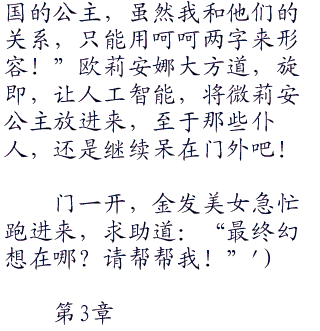 国的公主，虽然我和他们的
关系，只能用呵呵两字来形
容！”欧莉安娜大方道，旋
即，让人工智能，将微莉安
公主放进来，至于那些仆
人，还是继续呆在门外吧！
门一开，金发美女急忙
跑进来，求助道：“最终幻
想在哪？请帮帮我！”′)
第3章